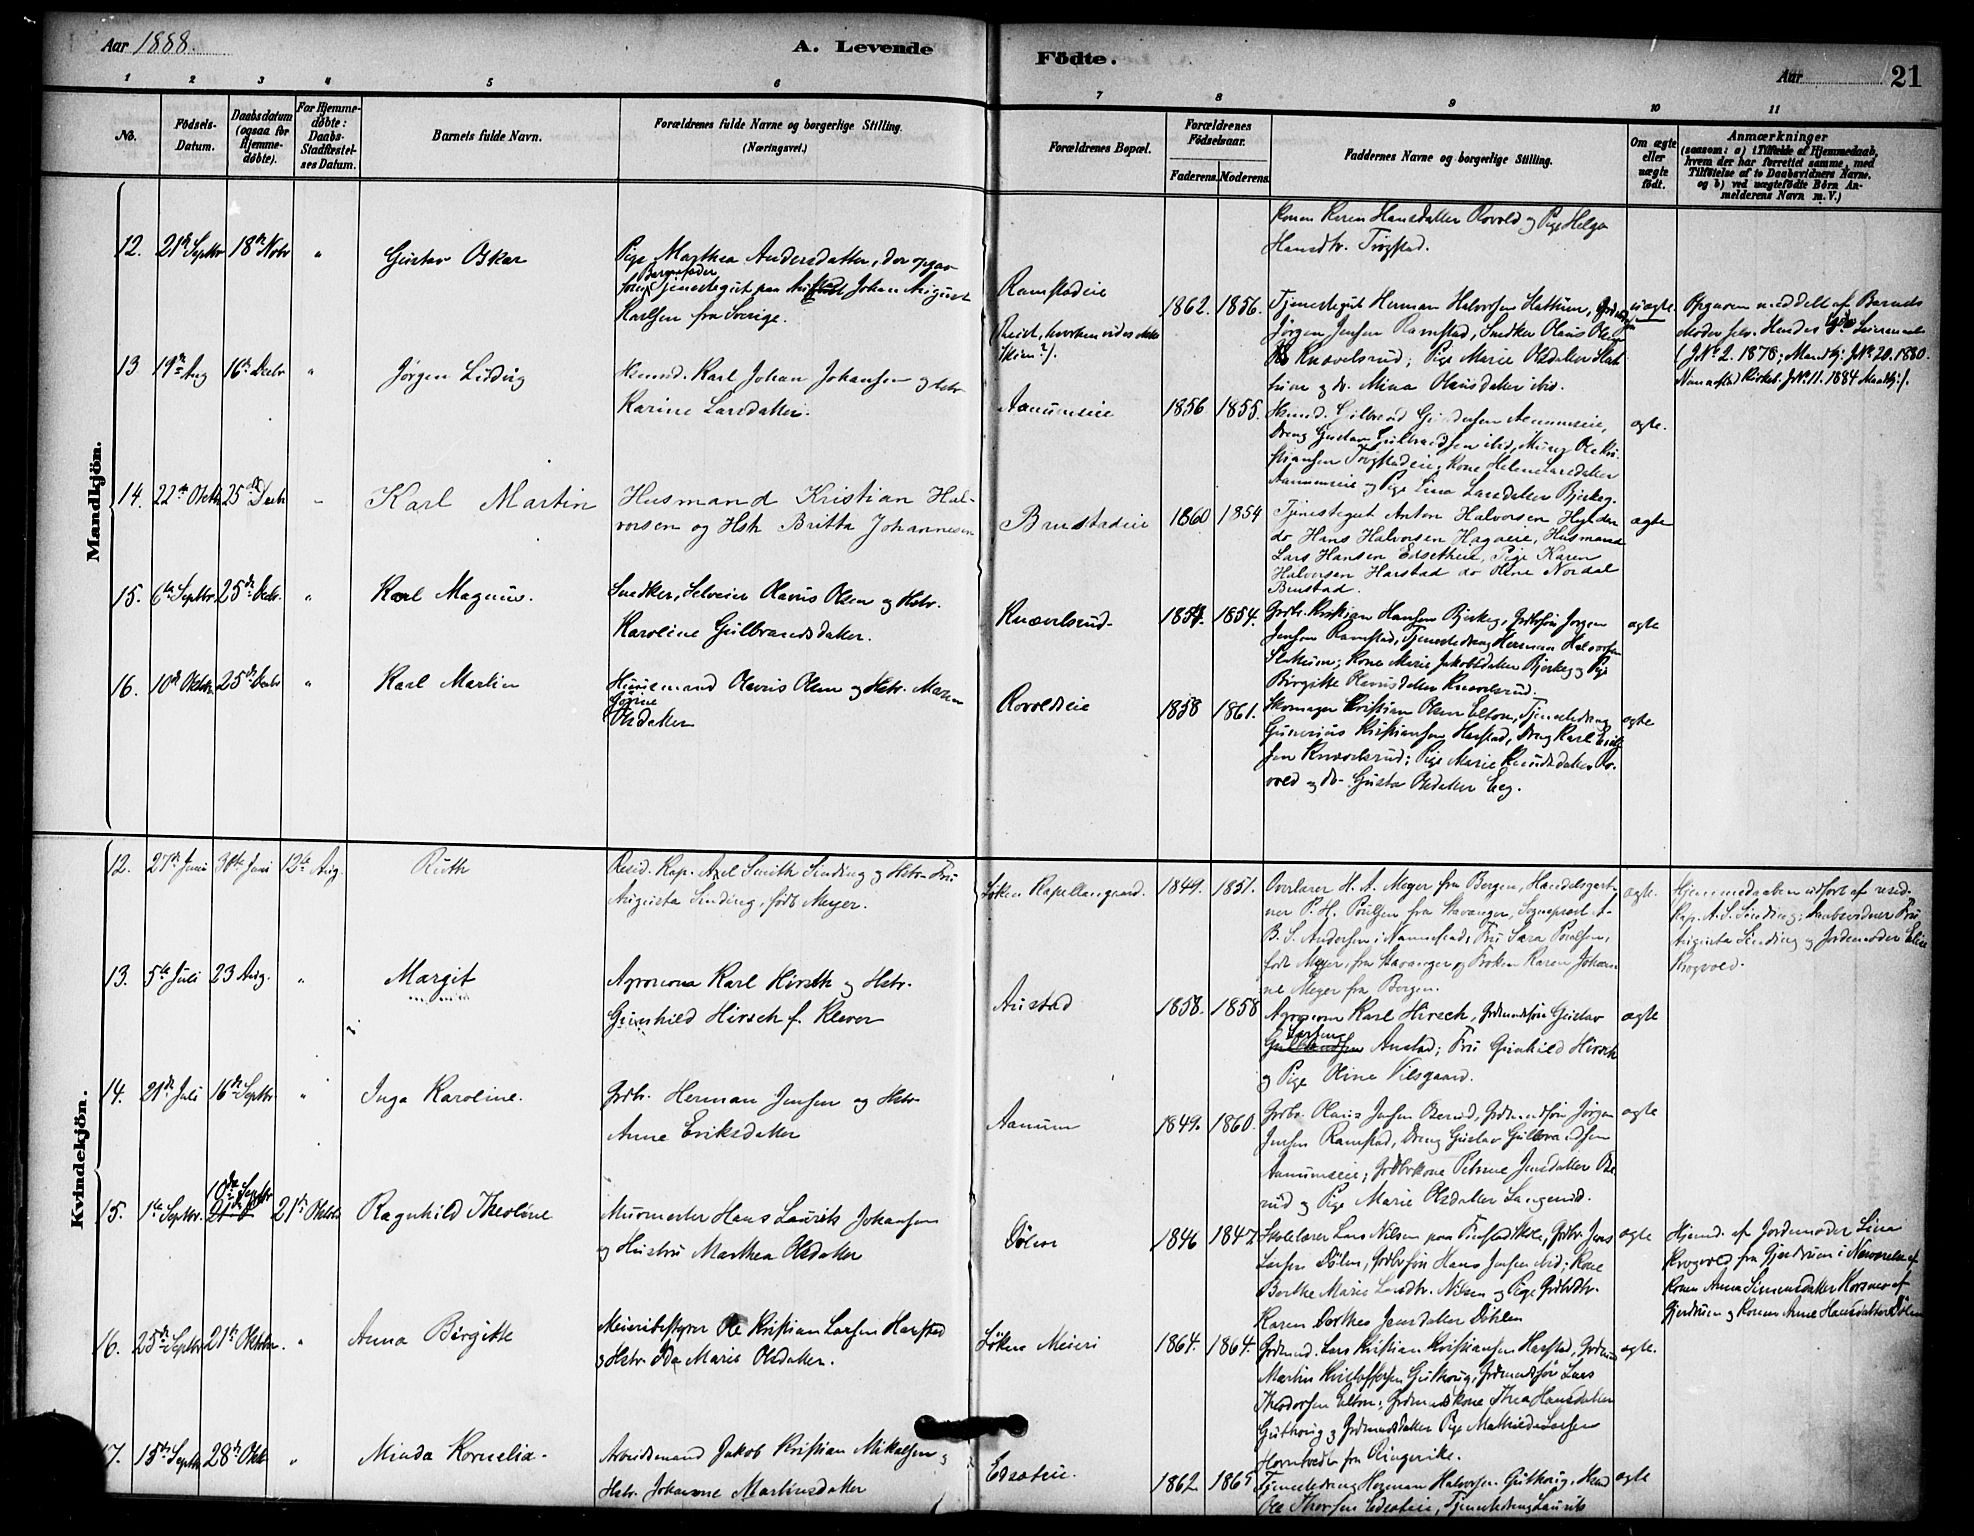 Aar 1888.
A. Levende Födte.
Aar 21
1 2 3 4 5 6 7 8 9 10 11
No.
Födsels-Datum.
Daabsdatum (ogsaa for Hjemme-döbte).
For Hjemme-döbte: Daabs-Stadfæstel-ses Datum.
Barnets fulde Navn.
Forældrenes fulde Navne og borgerlige Stilling. (Næringsvei.)
Forældrenes Bopæl.
Forældrenes Födselsaar.
Faderens. Moderens.
Faddernes Navne og borgerlige Stilling.
Om ægte eller uægte födt.
Anmærkninger
(saasom: a) i Tilfælde af Hjemmedaab,
hvem der har forrettet samme, med
Tilföielse af to Daabsvidners Navne.
og b) ved uægtefödte Börn An-
melderens Navn m. V.)
Mandkjön.
Konen Karen Hansdatter Rovold og Pige Helga
Hansdtr. Trøgstad.
12. 21de Septbr 18de Novbr "
Gustav Oskar
Pige Marthea Andersdatter, der opgav
som Barnefader Tjenestegut paa Austad Johan August
Karlsen fra Sverige.
Ramstadeie
1862. 1856.
Tjenestegut Herman Halvorsen Slattum,
Jørgen Jensen Ramstad, Snedker Olaus Olsen
Knævelsrud; Pige Marie Olsdatter Slat-
tum og do. Mina Olausdatter ibid.
uægte.
Opgaven meddelt af Barnets
Moder selv. Hendes
13 19de Aug 16de Decbr "
Jørgen Ludvig
Husmd. Karl Johan Johansen og Hstr.
Karine Larsdatter.
Aanumseie
1856 1855.
Husmd. Gulbrand Aanumseie,
Dreng Gustav Gulbrandsen ibid,
Trøgstadeie; Kone Helene Larsdatter
Aanumseie og Pige Lina Larsdatter Bjerkeg.
ægte.
14. 22de Oktbr 25de Decbr "
Karl Martin
Husmand Kristian Hal-
vorsen og Hstr Britta Johannesen
Brustadeie
1860 1854
Tjenestegut Anton Halvorsen
do Hans Halvorsen Hagaeie, Husmand
Lars Hansen Edsetheie, Pige Karen
Halvorsen Harstad do Oline Nordal
Brustad.
ægte
15. 6te Septbr. 25de Decbr. "
Karl Magnus.
Snedker, Selveier Olaus Olsen og Hstr.
Karoline Gulbrandsdatter.
Knævelsrud.
1854. 1854.
Grdbr. Kristian Hansen Bjerkeg, Grdbrsøn Jørgen
Jensen Ramstad, Tjenestedreng Herman Halvorsen
Slattum; Kone Marie Jakobsdatter Bjerkeg og Pige
Birgitte Olausdatter Knævelsrud.
ægte
16. 10de Oktbr 25de Decbr "
Karl Martin
Husmand Olaus Olsen og Hstr. Maren
Gorine
Olsdatter
Rovoldseie
1858 1861.
Skomager Kristian Olsen Elton, Tjenestedreng
Gunerius Kristiansen Harstad, Dreng Karl
sen Knævelsrud; Pige Marie Knudsdatter Ro-
vold og do. Gusta Olsdatter Eeg.
ægte
Kvindekjön.
12. 27de Juni 30te Juni 12te Aug.
Ruth
Resid. Kap. Axel Smith Sinding og Hstr. Fru
Augusta Sinding, født Meyer.
Løken Kapellangaard.
1849. 1851.
Overlærer H. A. Meyer fra Bergen, Handelsgart-
ner P. H. Poulsen fra Stavanger, Sogneprest A.
B. S. Andersen i Nannestad; Fru Sara Poulsen,
født Meyer, fra Stavanger og Frøken Karen Johan-
ne Meyer fra Bergen.
ægte.
Hjemmedaaben udført af resid.
Kap. A. S. Sinding; Daabsvidner Fru
Augusta Sinding og Jordemoder Eline
Krogvold.
13. 5te Juli 23 Aug. "
Margit
Agronom Karl Hirsch og Hstr.
Gunhild Hirsch f. Klever
Austad
1858. 1858
Agronom Karl Hirsch, Grdmandssøn Gustav
Austad; Fru Gunhild Hirsch
og Pige Oline Vilsgaard.
ægte
14. 21de Juli 16de Septbr. "
Inga Karoline.
Grdbr. Herman Jensen og Hstr.
Anne Eriksdatter
Aanum
1849. 1860.
Grdbr. Olaus Jensen Oserud, Grdmandssøn Jørgen
Jensen Ramstad, Dreng Gustav Gulbrandsen
Aanumseie; Grdbrkone Petrine Jensdatter Ose-
rud og Pige Marie Olsdatter Langerud.
ægte
15. 1ste Septbr. 10de Septbr 21de Oktbr
Ragnhild Theoline
Murmester Hans Laurits Johansen
og Hustru Marthea Olsdatter
Dølen
1846 1847
Skolelærer Lars Nilsen paa Skole, Grdbr. Jens
Larsen Dølen, Grdbrsøn Hans Jensen ibid; Kone
Berthe Marie Larsdtr. Nilsen og Pige Grdbrdtr.
Karen Dorthea Jensdatter Döhlen
ægte
Hjemd. af Jordemoder Lina
Krogvold fra Gjerdrum i Nærværelse af
Konen Anna Simensdatter af
Gjerdrum og Konen Anne Hansdatter Dølen
16. 25de Septbr 21de Oktbr. "
Anna Birgitte
Meieribestyrer Ole Kristian Larsen Harstad
og Hstr. Ida Marie Olsdatter.
Løken Meieri
1864. 1864.
Grdmd. Lars Kristian Kristiansen Harstad, Grdmd
Martin Kristoffersen Guthorig, Grdmandssøn Lars
Theodorsen Elton; Grdmandskone Thea Hansdatter
Guthorig og Grdmandsdatter Pige Mathilde Larsen
Horntvedt fra Ringerike.
ægte.
17. 15de Septbr 28de Oktbr "
Minda Kornelia.
Arbeidsmand Jakob Kristian Mikalsen og
Hstr. Johanne Martinsdatter
Edsateie.
1862 1865
Tjenestedreng Herman Halvorsen Guthorig, Husmd
Ole Thorsen Edsateie, Tjenestedreng Laurits
ægte